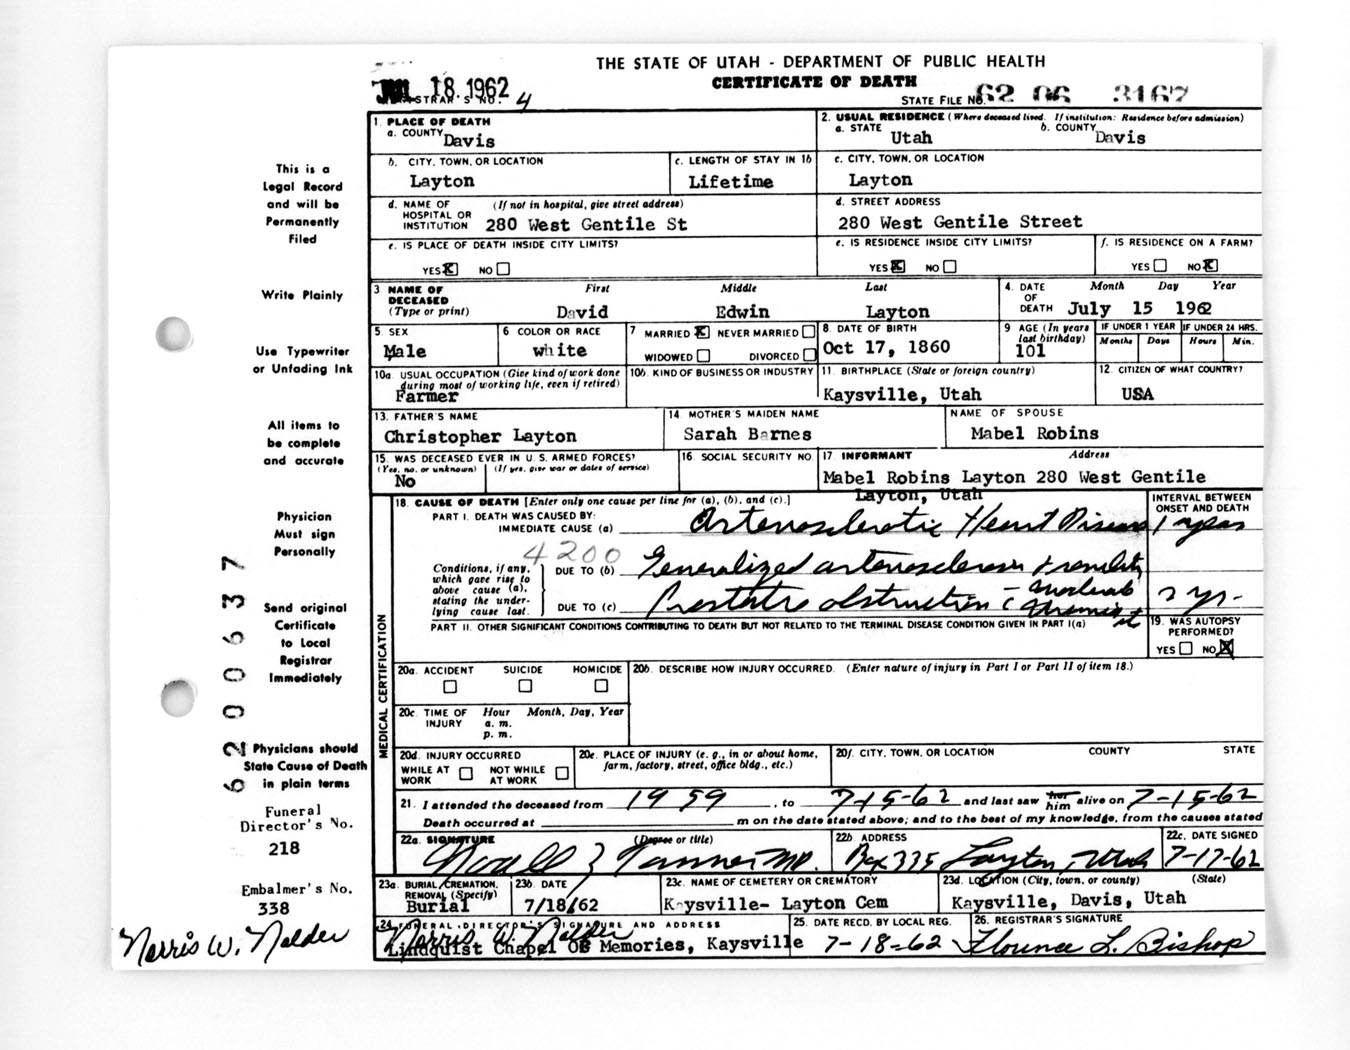 THE STATE OF UTAH - DEPARTMENT OF PUBLIC HEALTH
CERTIFICATE OF DEATH
18 1962
REGISTRAR'S NO. 4
STATE FILE NO. 62 06 3167
1. PLACE OF DEATH
a. COUNTY Davis
2. USUAL RESIDENCE (Where deceased lived. If institution: Residence before admission)
a. STATE Utah b. COUNTY Davis
b. CITY, TOWN, OR LOCATION
Layton
c. LENGTH OF STAY IN 1b
Lifetime
c. CITY, TOWN, OR LOCATION
Layton
d. NAME OF HOSPITAL OR INSTITUTION (If not in hospital, give street address)
280 West Gentile St
d. STREET ADDRESS
280 West Gentile Street
e. IS PLACE OF DEATH INSIDE CITY LIMITS?
YES X NO
e. IS RESIDENCE INSIDE CITY LIMITS?
YES X NO
f. IS RESIDENCE ON A FARM?
YES NO X
3 NAME OF DECEASED (Type or print)
First Middle Last
David Edwin Layton
4. DATE OF DEATH Month Day Year
July 15 1962
5. SEX
Male
6 COLOR OR RACE
white
7 MARRIED X NEVER MARRIED
WIDOWED DIVORCED
8 DATE OF BIRTH
Oct 17, 1860
9 AGE (In years last birthday)
101
IF UNDER 1 YEAR IF UNDER 24 HRS.
Months Days Hours Min.
10a. USUAL OCCUPATION (Give kind of work done during most of working life, even if retired)
Farmer
10b. KIND OF BUSINESS OR INDUSTRY
11. BIRTHPLACE (State or foreign country)
Kaysville, Utah
12. CITIZEN OF WHAT COUNTRY?
USA
13. FATHER'S NAME
Christopher Layton
14 MOTHER'S MAIDEN NAME
Sarah Barnes
NAME OF SPOUSE
Mabel Robins
15. WAS DECEASED EVER IN U. S. ARMED FORCES?
(Yes, no, or unknown) (If yes, give war or dates of service)
No
16. SOCIAL SECURITY NO.
17 INFORMANT Address
Mabel Robins Layton 280 West Gentile
Layton, Utah
MEDICAL CERTIFICATION
18. CAUSE OF DEATH [Enter only one cause per line for (a), (b), and (c).]
INTERVAL BETWEEN ONSET AND DEATH
PART I. DEATH WAS CAUSED BY:
IMMEDIATE CAUSE (a) Arteriosclerotic Heart Disease 1 year
4200
Conditions, if any, which gave rise to above cause (a), stating the underlying cause last.
DUE TO (b) Generalized arteriosclerosis + senility
DUE TO (c) Prostatic obstruction c 2 yr.
PART II. OTHER SIGNIFICANT CONDITIONS CONTRIBUTING TO DEATH BUT NOT RELATED TO THE TERMINAL DISEASE CONDITION GIVEN IN PART I(a)
19. WAS AUTOPSY PERFORMED?
YES NO X
20a. ACCIDENT SUICIDE HOMICIDE
20b. DESCRIBE HOW INJURY OCCURRED. (Enter nature of injury in Part I or Part II of item 18.)
20c. TIME OF INJURY Hour Month, Day, Year
a. m.
p. m.
20d. INJURY OCCURRED
WHILE AT WORK NOT WHILE AT WORK
20e. PLACE OF INJURY (e. g., in or about home, farm, factory, street, office bldg., etc.)
20f. CITY, TOWN, OR LOCATION COUNTY STATE
21. I attended the deceased from 1959, to 7-15-62 and last saw her him alive on 7-15-62
Death occurred at m on the date stated above; and to the best of my knowledge, from the causes stated
22a. SIGNATURE (Degree or title)
Tanner MD.
22b. ADDRESS
Box 335 Layton, Utah
22c. DATE SIGNED
7-17-62
23a. BURIAL, CREMATION, REMOVAL (Specify)
Burial
23b. DATE
7/18/62
23c. NAME OF CEMETERY OR CREMATORY
Kaysville- Layton Cem
23d. LOCATION (City, town, or county) (State)
Kaysville, Davis, Utah
24. FUNERAL DIRECTOR'S SIGNATURE AND ADDRESS
Norris W. Nalder
Lindquist Chapel Of Memories, Kaysville
25. DATE RECD. BY LOCAL REG.
7-18-62
26. REGISTRAR'S SIGNATURE
Florence L. Bishop
This is a
Legal Record
and will be
Permanently
Filed
Write Plainly
Use Typewriter
or Unfading Ink
All items to
be complete
and accurate
Physician
Must sign
Personally
Send original
Certificate
to Local
Registrar
Immediately
Physicians should
State Cause of Death
in plain terms
6200637
Funeral
Director's No.
218
Embalmer's No.
338
Norris W. Nalder